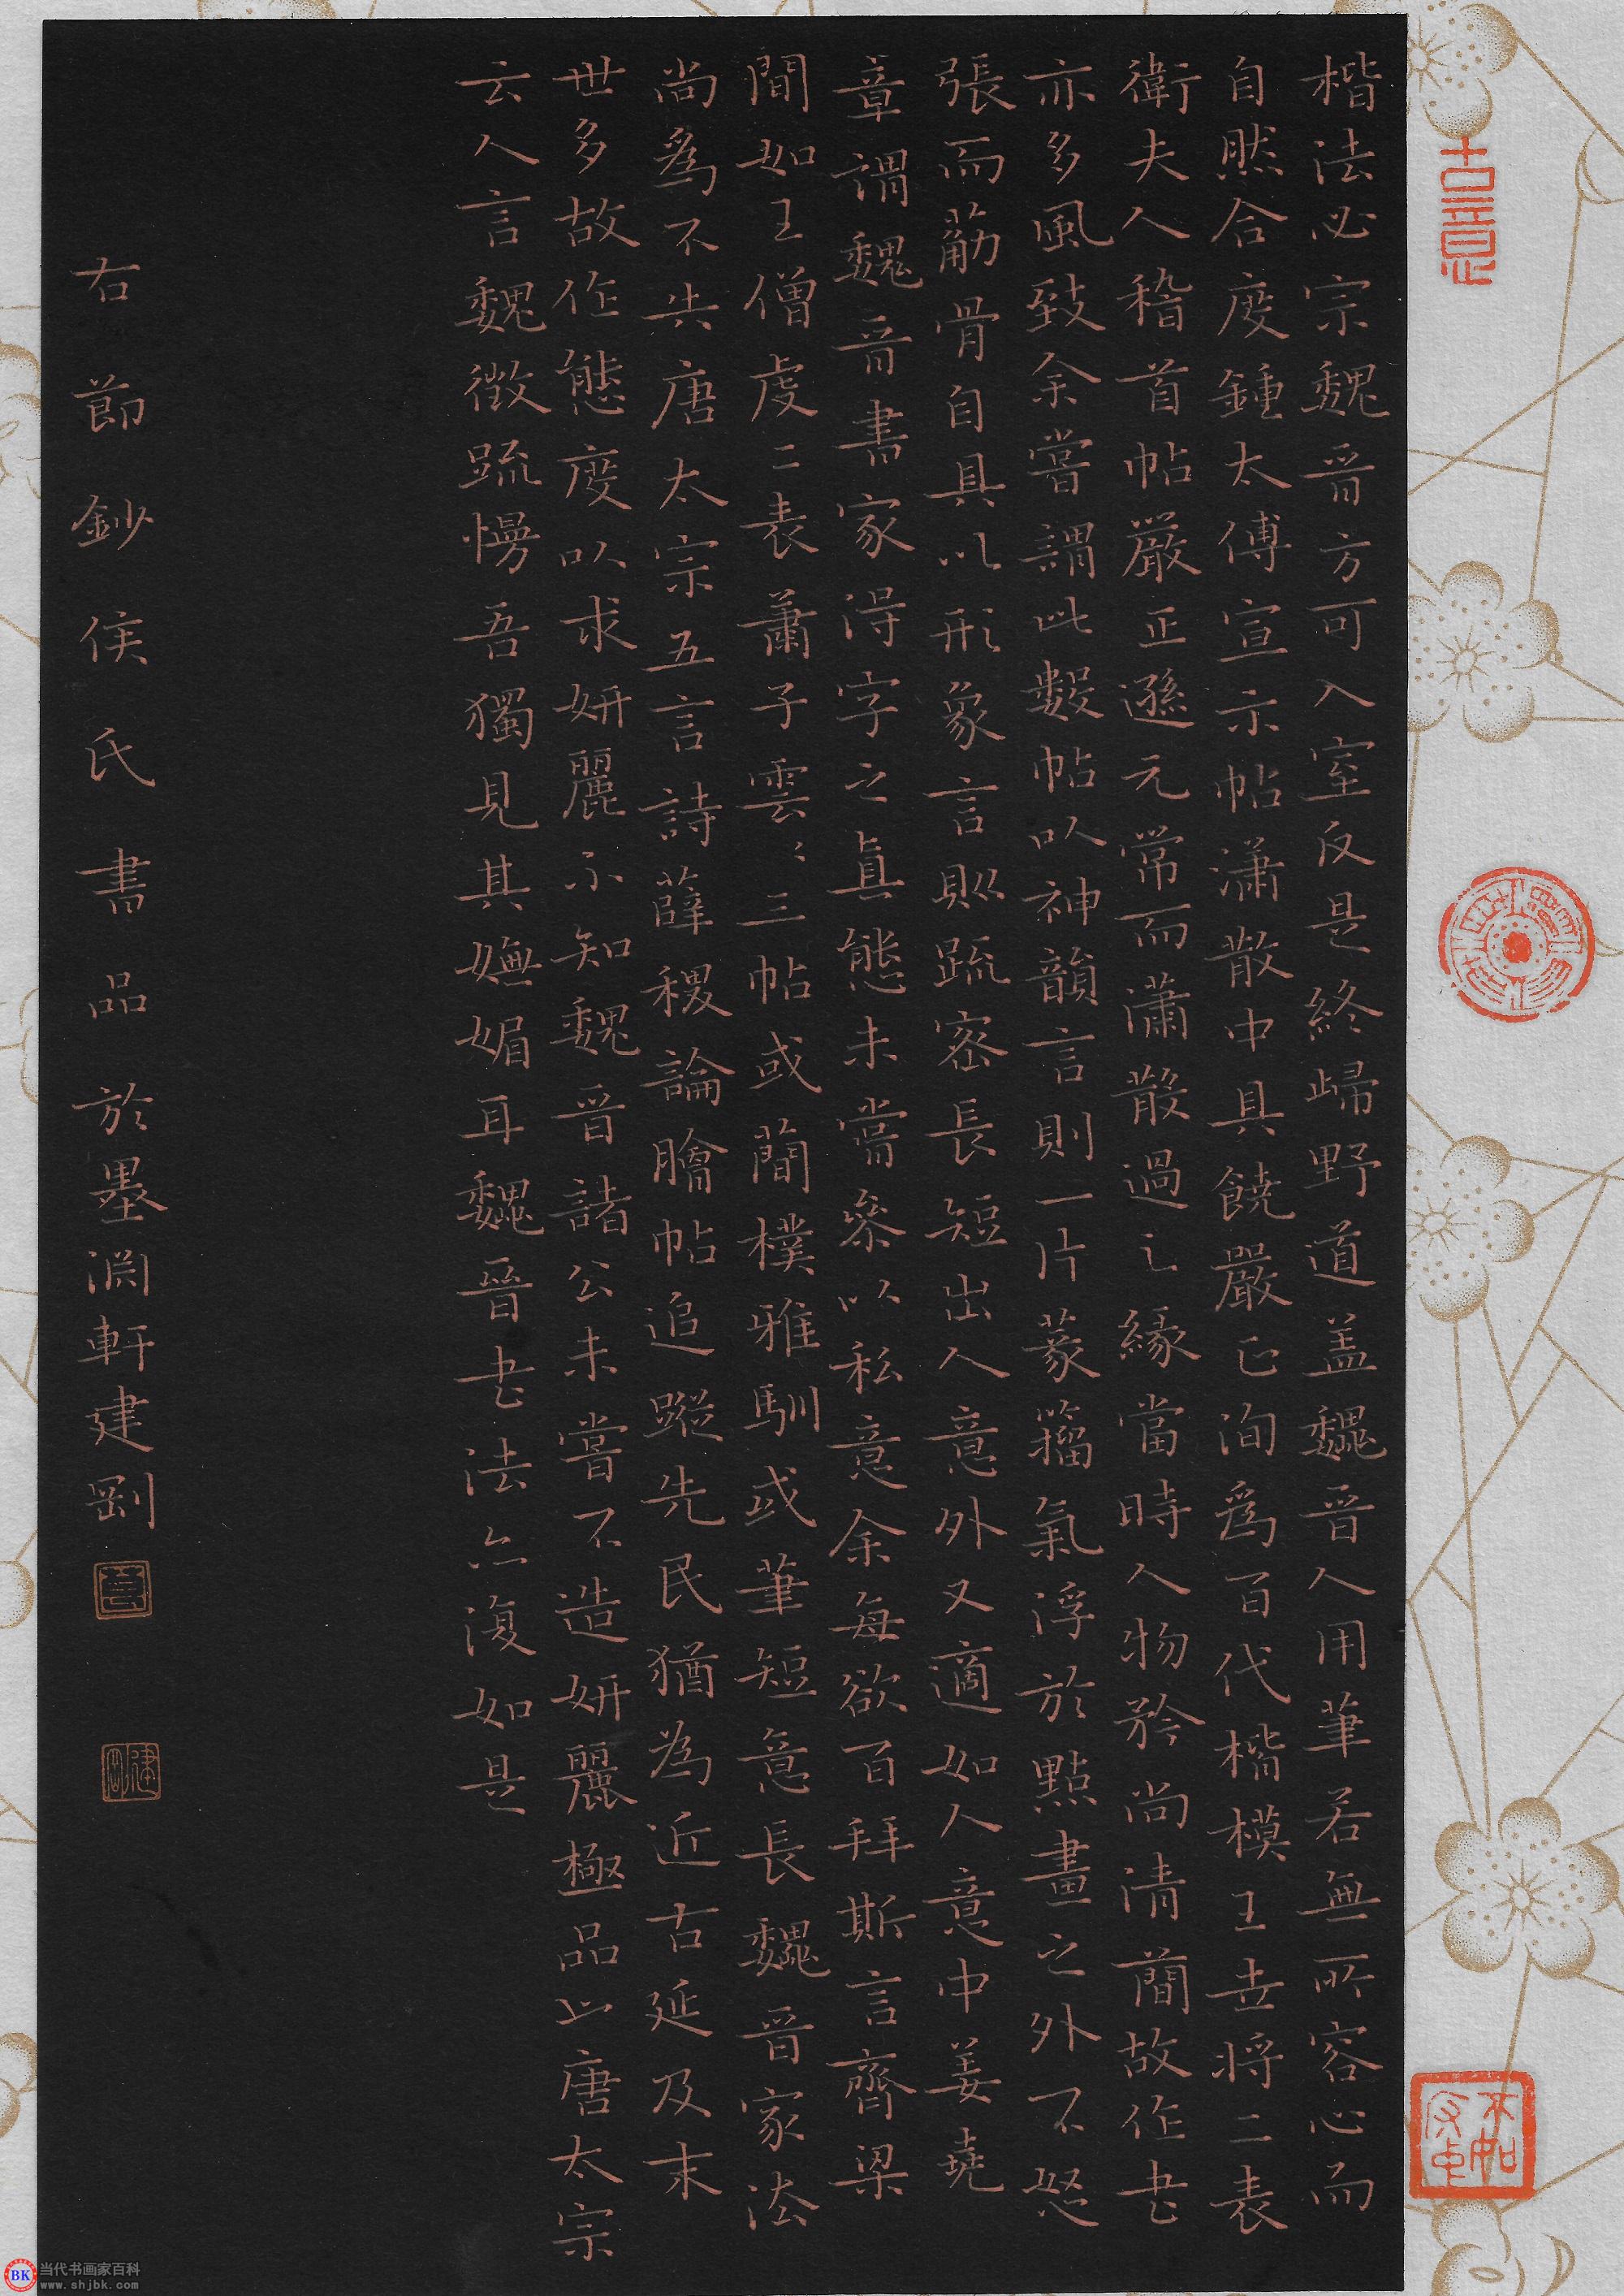 楷法必宗魏晉方可入室反是終歸野道蓋魏晉人用筆若無所容心而
自然合度鍾太傅宣示帖瀟散中具饒嚴正洵爲百代楷模王世將二表
衛夫人稽首帖嚴正遜元常而瀟散過之緣當時人物矜尚清簡故作書
亦多風致余嘗謂此數帖以神韻言則一片篆籀氣浮於點畫之外不怒
張而筋骨自具以形象言則疏密長短出人意外又適如人意中姜堯
章謂魏晉書家得字之真態未嘗參以私意余每欲百拜斯言齊梁
間如王僧虔二表蕭子雲二三帖或簡樸雅馴或筆短意長魏晉家法
尚爲不失唐太宗五言詩薛稷論膾帖追蹤先民猶為近古延及末
世多故作態度以求妍麗不知魏晉諸公未嘗不造妍麗極品也唐太宗
云人言魏徵疏慢吾獨見其嫵媚耳魏晉書法亦復如是
右節鈔侯氏書品於墨淵軒建剛
建剛
吉意
不如
當代书画家百科
www.shjbk.com
BK